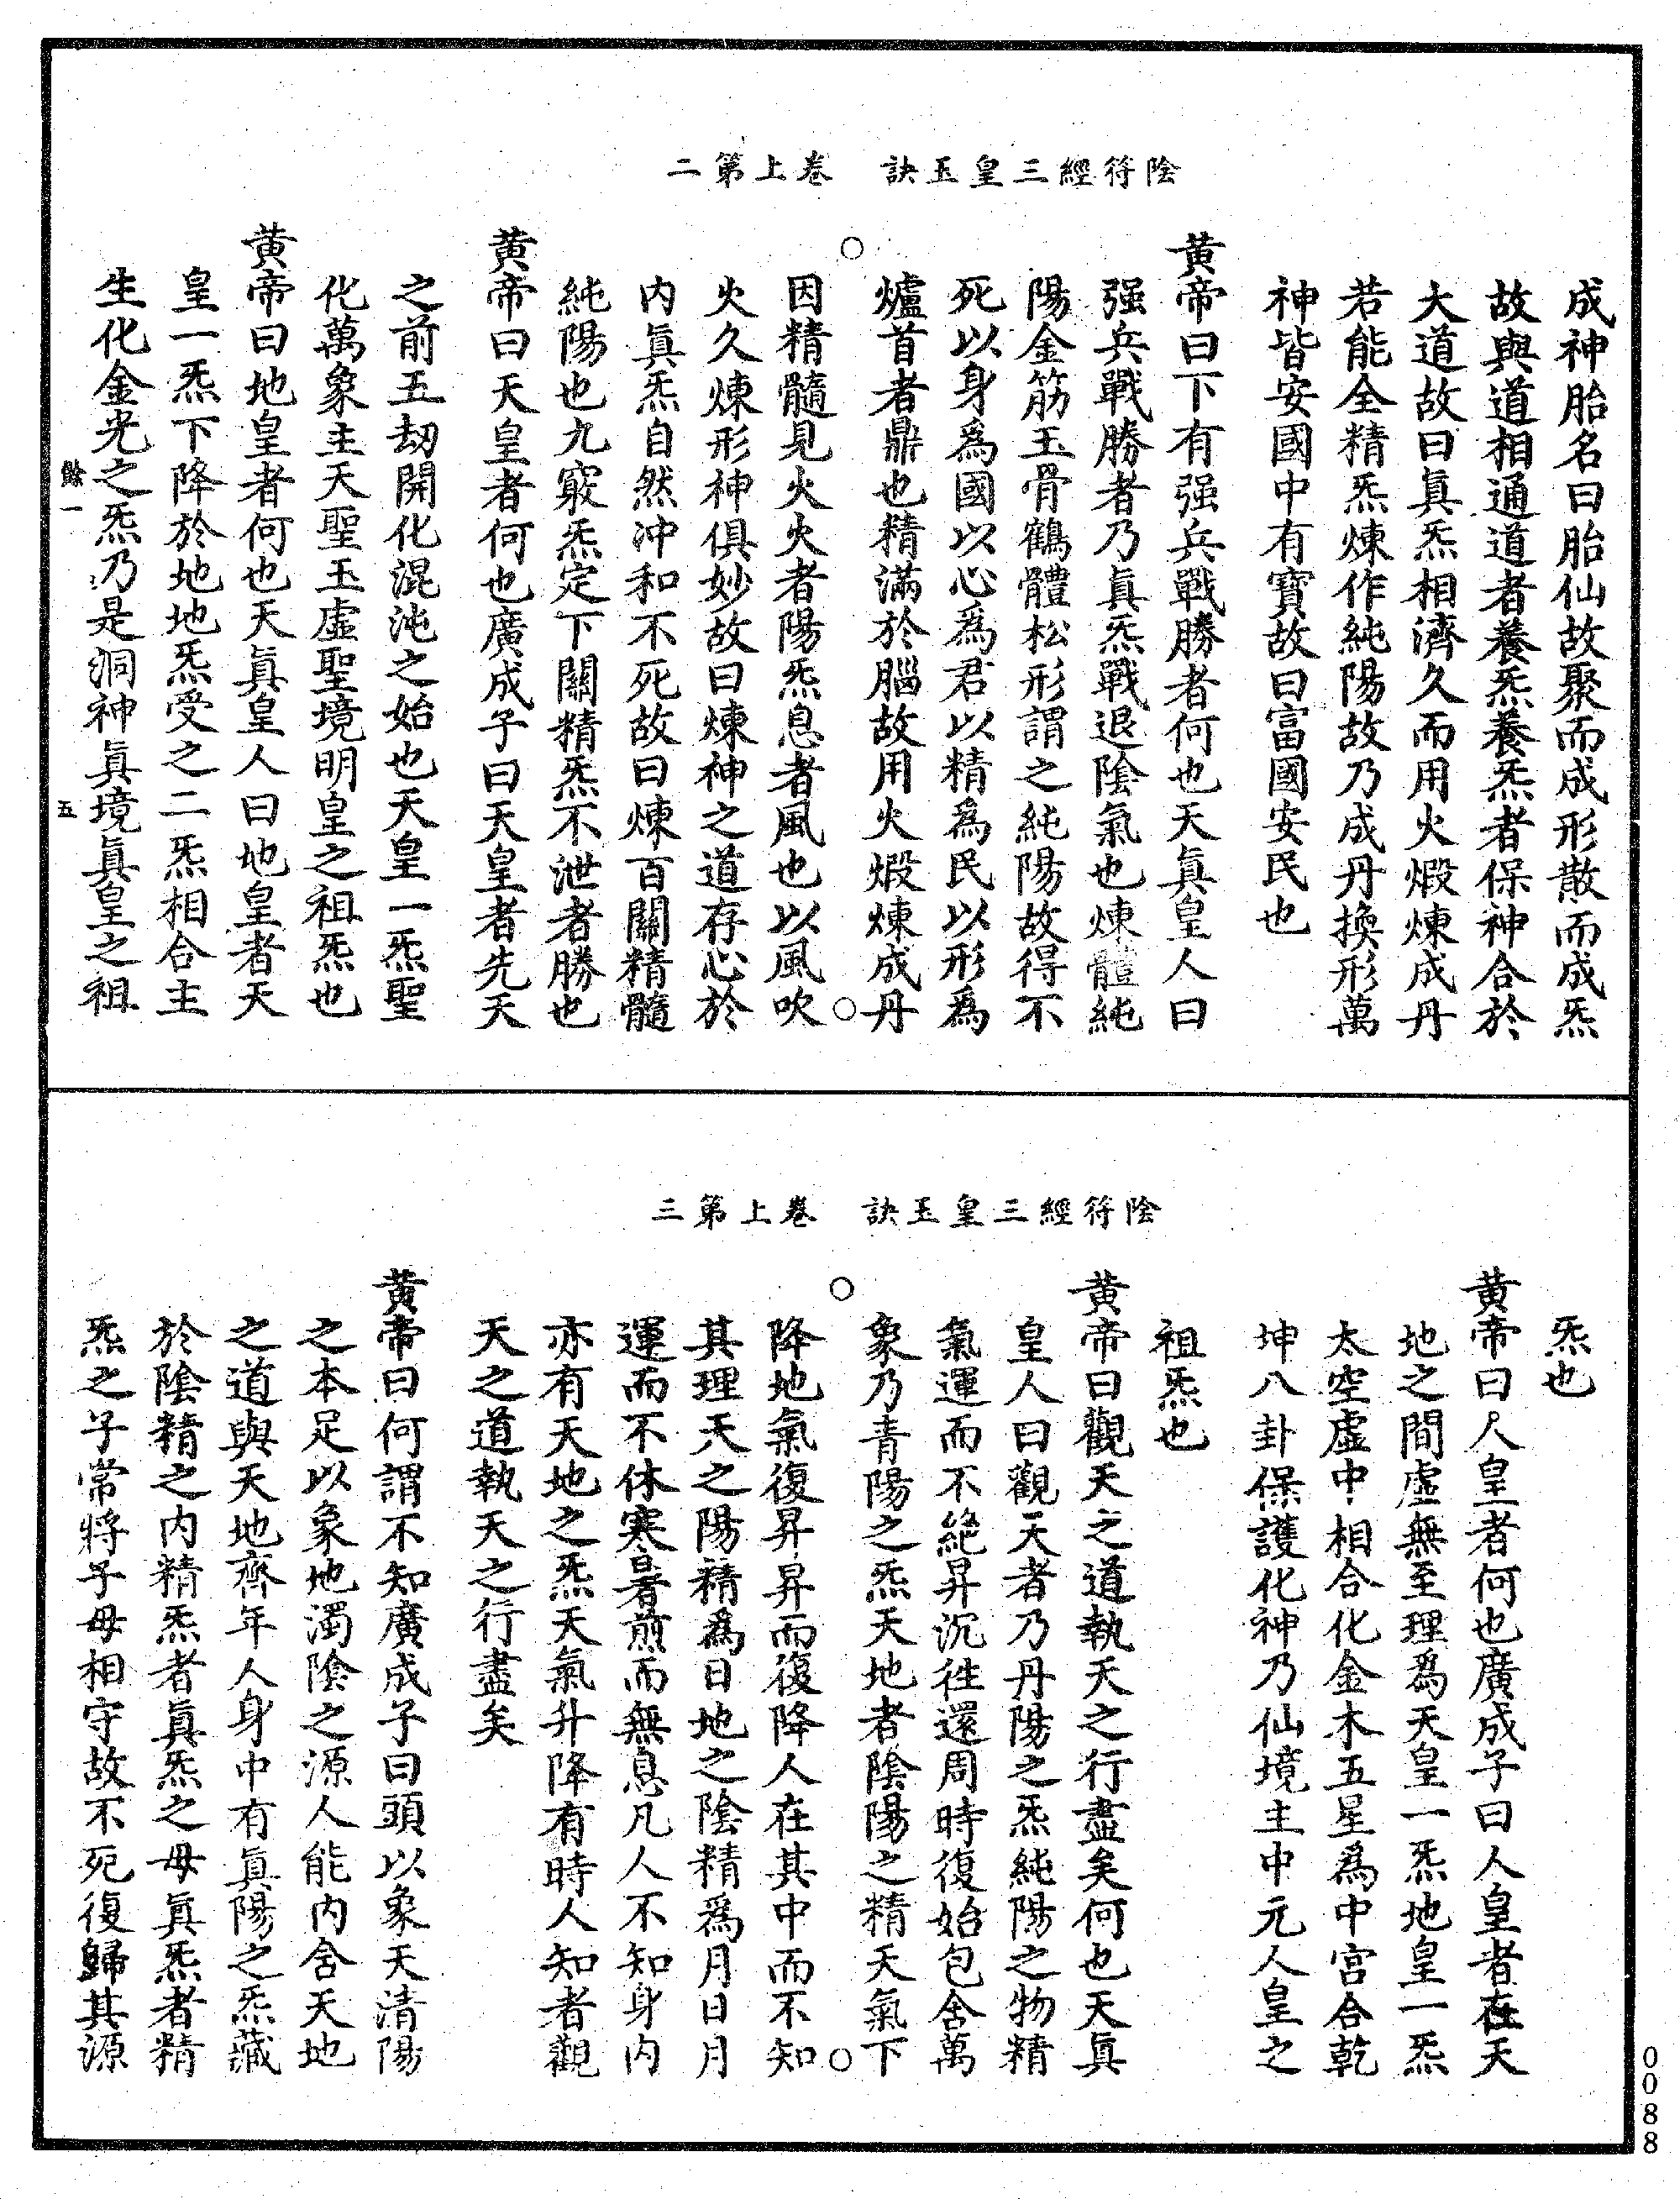 陰符經三皇玉訣　卷上第二
成神胎名曰胎仙故聚而成形散而成炁
故與道相通道者養炁養炁者保神合於
大道故曰眞炁相濟久而用火煅煉成丹
若能全精炁煉作純陽故乃成丹換形萬
神皆安國中有寶故曰富國安民也
黃帝曰下有强兵戰勝者何也天眞皇人曰
强兵戰勝者乃眞炁戰退陰氣也煉體純
陽金筋玉骨鶴體松形謂之純陽故得不
死以身爲國以心爲君以精爲民以形爲
爐首者鼎也精滿於腦故用火煅煉成丹
因精髓見火火者陽炁息者風也以風吹
火久煉形神俱妙故曰煉神之道存心於
内眞炁自然冲和不死故曰煉百關精髓
純陽也九竅炁定下關精炁不泄者勝也
黃帝曰天皇者何也廣成子曰天皇者先天
之前五劫開化混沌之始也天皇一炁聖
化萬象主天聖玉虛聖境明皇之祖炁也
黃帝曰地皇者何也天眞皇人曰地皇者天
皇一炁下降於地地炁受之二炁相合主
生化金光之炁乃是洞神眞境眞皇之祖
餘一　五
陰符經三皇玉訣　卷上第三
炁也
黃帝曰人皇者何也廣成子曰人皇者在天
地之間虛無至理爲天皇一炁地皇一炁
太空虛中相合化金木五星爲中宮合乾
坤八卦保護化神乃仙境主中元人皇之
祖炁也
黃帝曰觀天之道執天之行盡矣何也天眞
皇人曰觀天者乃丹陽之炁純陽之物精
氣運而不絕昇沉往還周時復始包含萬
象乃青陽之炁天地者陰陽之精天氣下
降地氣復昇昇而復降人在其中而不知
其理天之陽精爲日地之陰精爲月日月
運而不休寒暑煎而無息凡人不知身内
亦有天地之炁天氣升降有時人知者觀
天之道執天之行盡矣
黃帝曰何謂不知廣成子曰頭以象天清陽
之本足以象地濁陰之源人能内含天地
之道與天地齊年人身中有眞陽之炁藏
於陰精之内精炁者眞炁之母眞炁者精
炁之子常將子母相守故不死復歸其源
0088